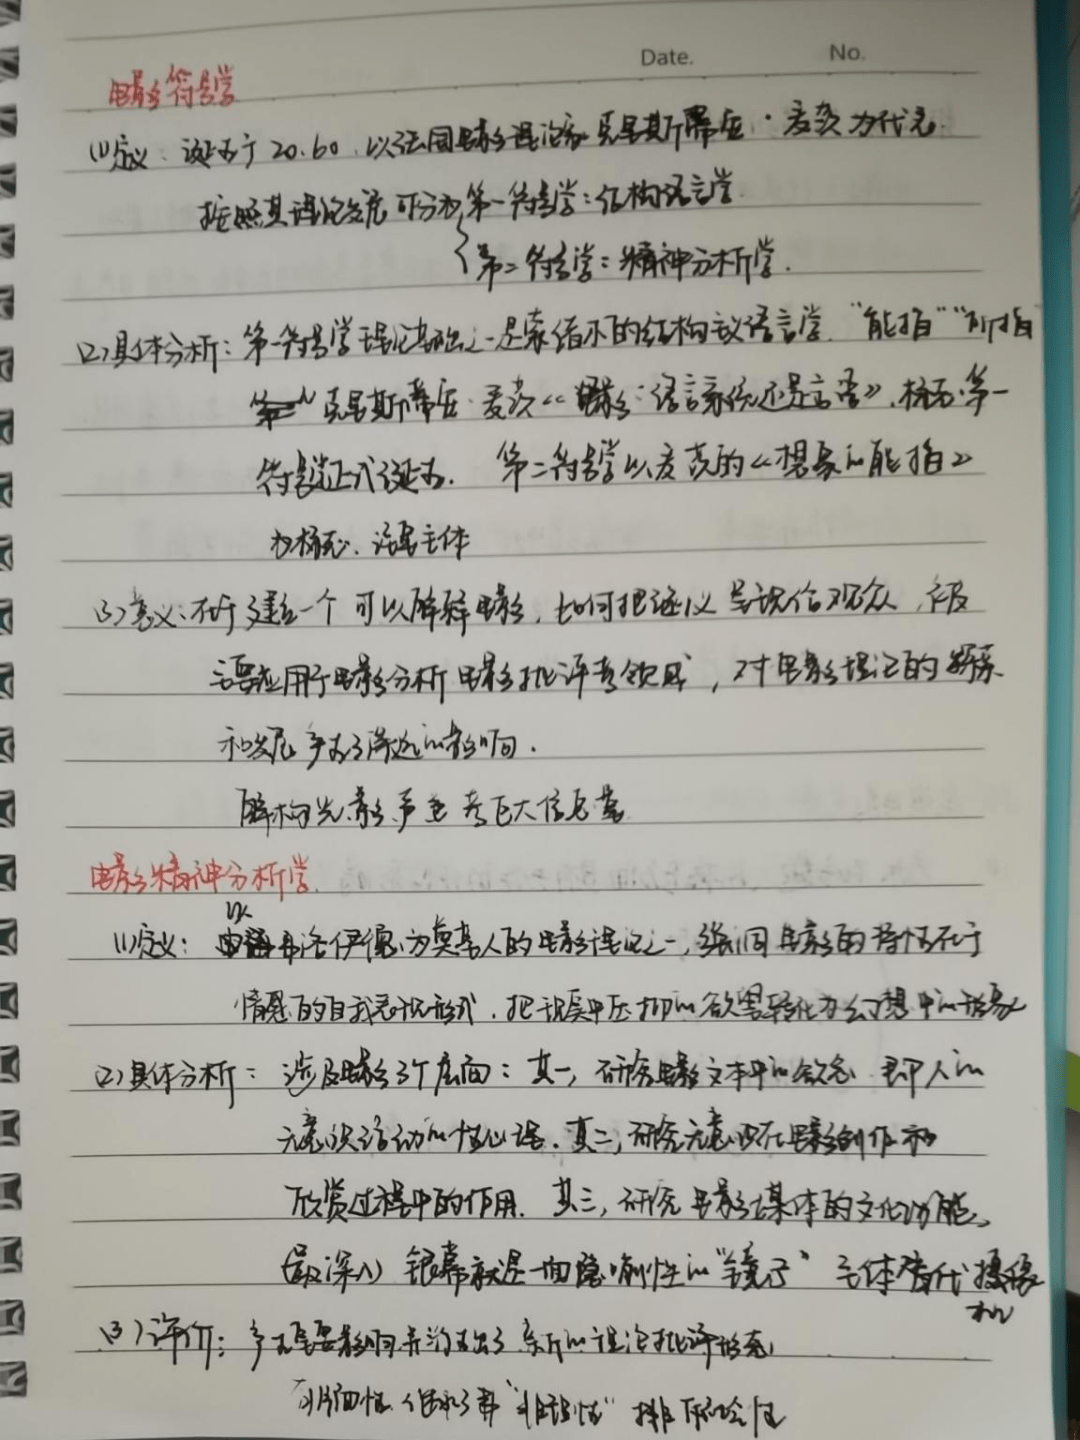 Date. No.
电影符号学
(1)定义：诞生于20.60，以法国电影理论家克里斯蒂安·麦茨为代表.
按照其理论发展可分为第一符号学：结构语言学
第二符号学：精神分析学.
(2)具体分析：第一符号学理论基础之一是索绪尔的结构主义语言学."能指""所指"
克里斯蒂安·麦茨《电影：语言系统还是言语》,标志第一
符号学正式诞生. 第二符号学以麦茨的《想象的能指》
为标志.
(3)意义：在于建立一个可以解释电影,如何把涵义呈现给观众,被
主要应用于电影分析电影批评等领域,对电影理论的探索
和发展产生了深远的影响.
解构光影声色等巨大信息量
电影精神分析学.
(1)定义：以弗洛伊德为奠基人的电影理论之一,强调电影的特性在于
情感的自我表现形式.把现实中压抑的欲望转化为幻想中的形象
(2)具体分析：涉及电影3个层面：其一,研究电影文本中的欲念 即人的
无意识活动的性心理.其二,研究无意识在电影创作和
欣赏过程中的作用. 其三,研究电影媒体的文化功能,
(最深入) 银幕就是一面隐喻性的"镜子" 主体替代摄像
机
(3)评价：产生重要影响并衍生出了新的理论批评形态
片面性 "非理性" 排斥社会性